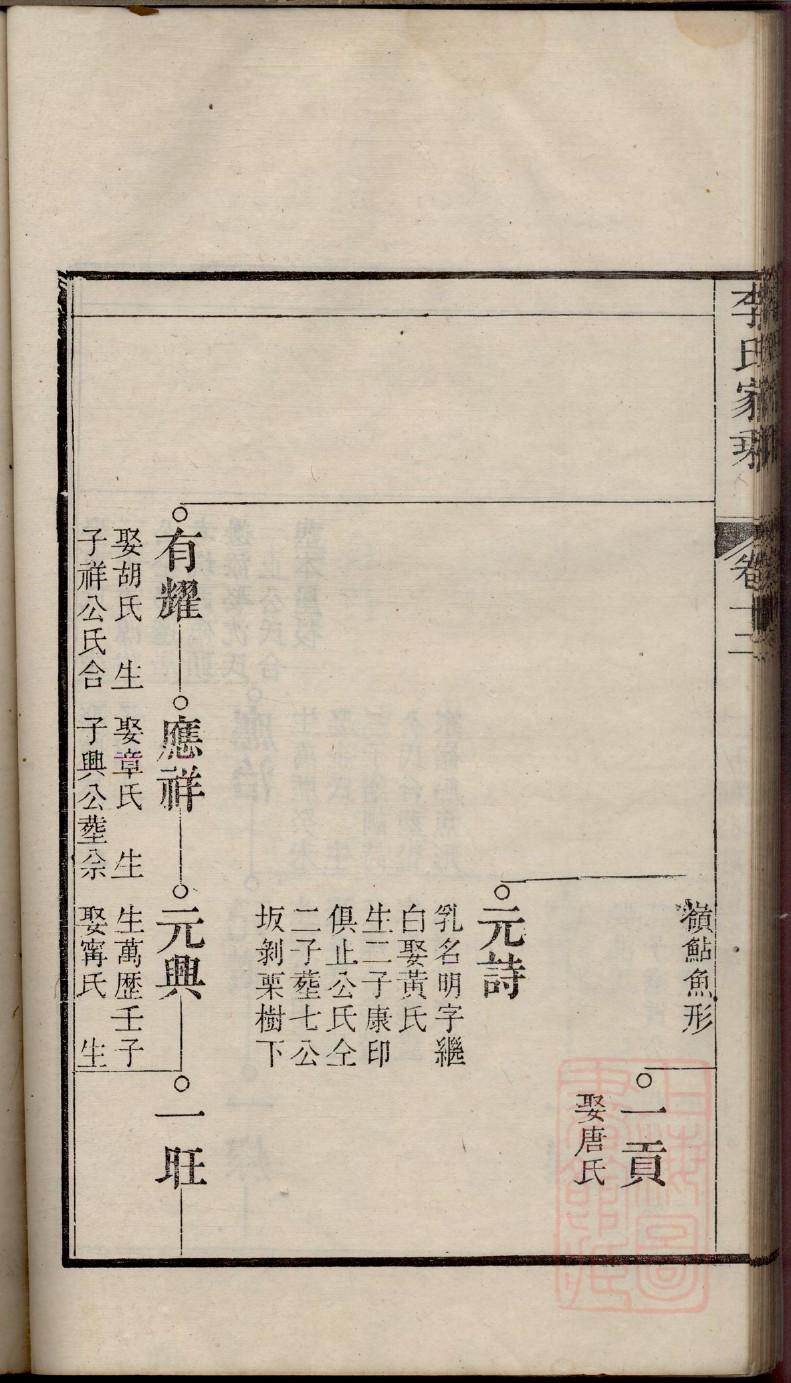 李氏家乘
卷十二
嶺鮎魚形
一貢
娶唐氏
元詩
乳名明字繼
白娶黃氏
生二子康印
俱止公氏仝
二子塟七公
坂剝栗樹下
有耀
娶胡氏 生
子祥公氏合
應祥
娶章氏 生
子興公塟𠔃
元興
生萬歷壬子
娶甯氏 生
一旺